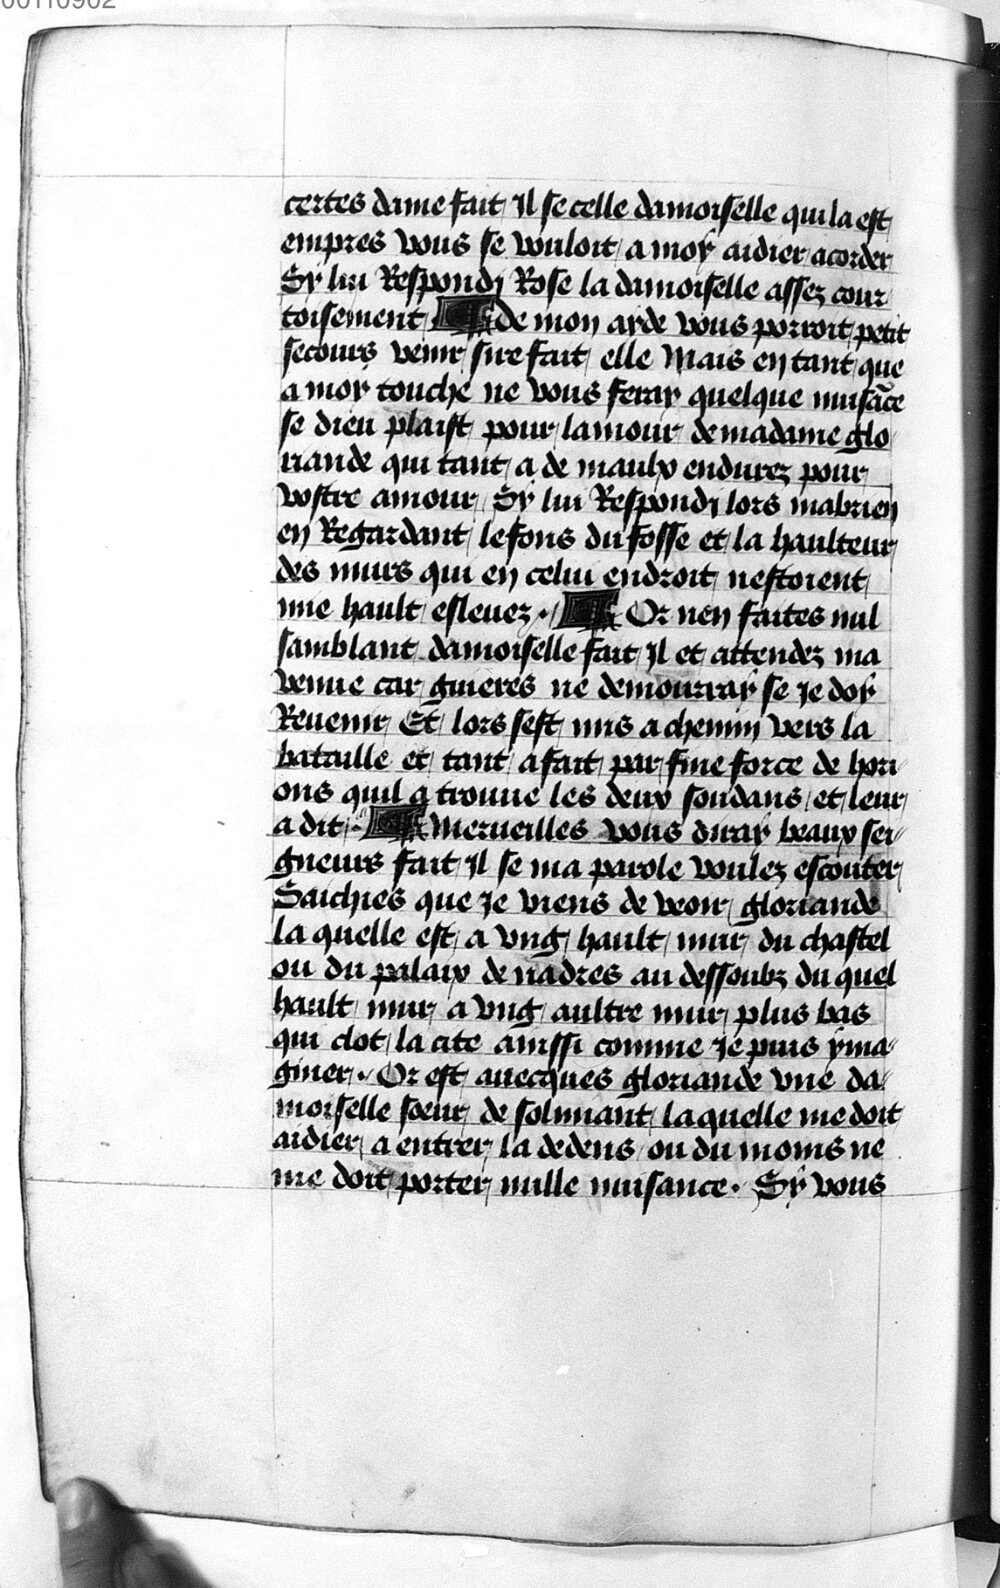 00110902
certes dame fait Il se celle damoiselle qui la est
empres vous se vouloit a moy aidier acorder
Sy lui Respondy Rose la damoiselle assez cour
toisement ¶ de mon ayde vous porroit petit
secours venir sire fait elle Mais en tant que
a moy touche ne vous feray quelque nuisãce
se dieu plaist pour lamour de madame glo
riande qui tant a de maulx endurez pour
vostre amour Sy lui Respondy lors mabrien
en Regardant le fons du fosse et la haulteur
des murs qui en celui endroit nestoient
mie hault eslevez. ¶ Or nen faites nul
samblant damoiselle fait Il et attendez ma
venue car guieres ne demourray se Je doy
Revenir Et lors sest mis a chemin vers la
bataille et tant a fait par fine force de hori-
ons quil a trouue les deux soudans et leur
a dit. ¶ Merueilles vous diray beaux sei-
gneurs fait Il se ma parole voulez escouter
Saichies que Je viens de veoir gloriande
la quelle est a vng hault mur du chastel
ou du palaix de nadres au dessoubz du quel
hault mur a vng aultre mur plus bas
qui clot la cite ainssi comme Je puis yma-
giner. Or est auecques gloriande vne da-
moiselle soeur de soliniant la quelle me doit
aidier a entrer la dedens ou du moins ne
me doit porter nulle nuisance. Sy vous